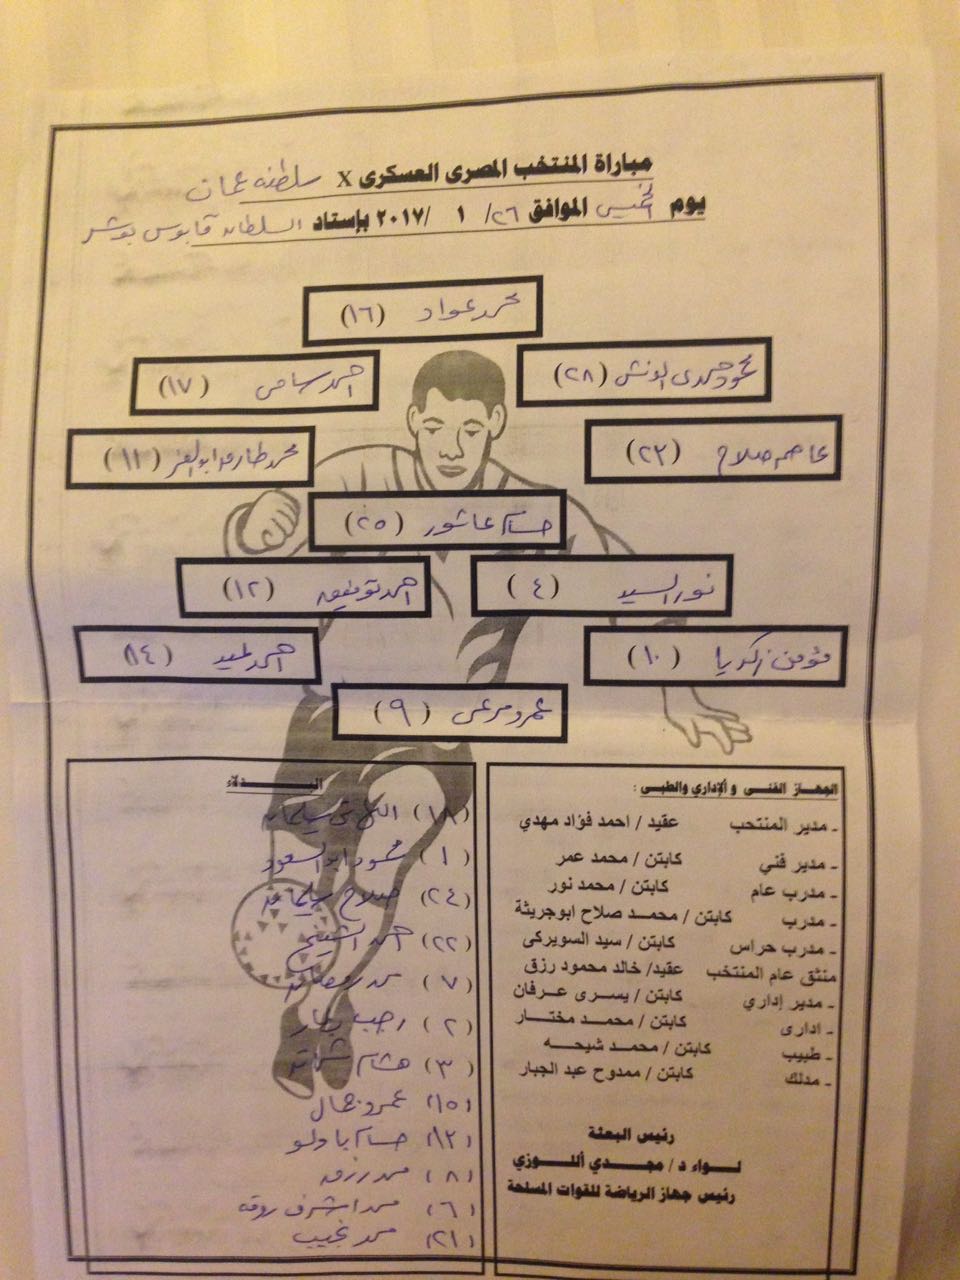 مباراة المنتخب المصرى العسكرى X سلطنه عمان
يوم الخميس الموافق ٢٦/ ١ /٢٠١٧ بإستاد السلطان قابوس بوشر
محمد عواد (١٦)
محمود حمدى الونش (٢٨)
احمد سامى (١٧)
عاصم صلاح (٢٣)
محمد طارق ابو العز (١١)
حسام عاشور (٢٥)
نور السيد (٤)
احمد توفيق (١٢)
مؤمن زكريا (١٠)
احمد (١٤)
عمرو مرعى (٩)
الجهاز الفنى و الإدارى والطبى :
ـ مدير المنتخب عقيد / احمد فؤاد مهدي
ـ مدير فني كابتن / محمد عمر
ـ مدرب عام كابتن / محمد نور
ـ مدرب كابتن / محمـد صلاح ابوجريشة
ـ مدرب حراس كابتن / سيد السويركى
منثق عام المنتخب عقيد/ خالد محمود رزق
ـ مدير إداري كابتن / يسرى عـرفان
ـ ادارى كابتن / محمـد مختـار
ـ طبيب كابتن / محمـد شيحـه
ـ مدلك كابتن / ممدوح عبد الجبار
رئيس البعثة
لـواء د/ مجـدي أللـوزي
رئيس جهاز الرياضة للقوات المسلحة
البـــدلاء
(١٨)
(١) محمود ابو السعود
(٢٤) صلاح سليمان
(٢٢) احمد الشيخ
(٧) محمد رمضان
(٢) رجب بكار
(٣) هشام شحاته
(١٥) عمرو جمال
(١٣) حسام باولو
(٨) محمد رزق
(٦) محمد اشرف روقه
(٢١) محمد نجيب